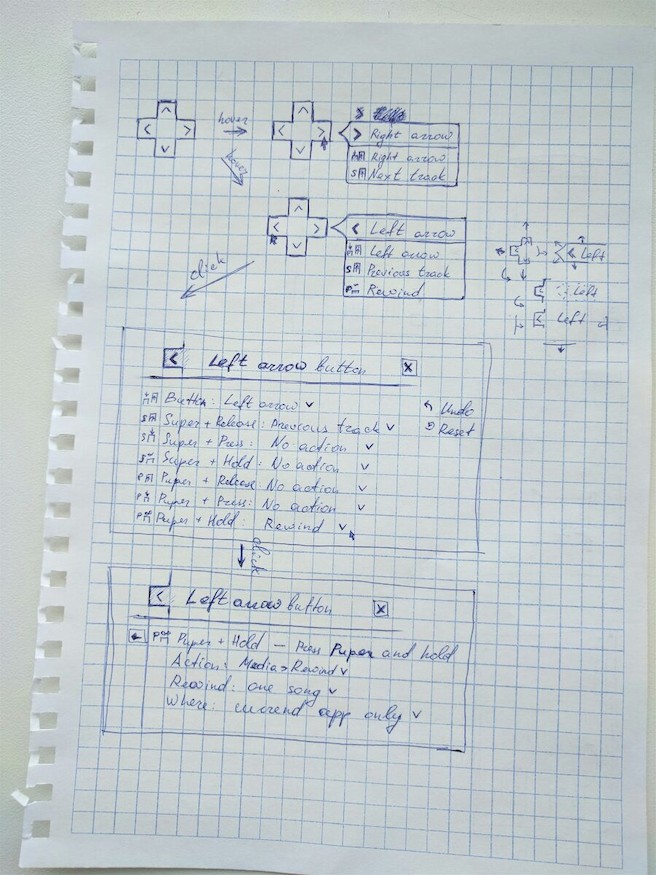 hover
hover
> Right arrow
Right arrow
S Next track
< Left arrow
Left arrow
S Previous track
P Rewind
click
< Left
Left
< Left
< Left arrow button x
Button: Left arrow v
S Super + Release: Previous track v
S Super + Press: No action v
S Super + Hold: No action v
P Puper + Release: No action v
P Puper + Press: No action v
P Puper + Hold: Rewind v
Undo
Reset
click
< Left arrow button x
← P Puper + Hold – Press Puper and hold
Action: Media > Rewind v
Rewind: one song v
Where: app only v